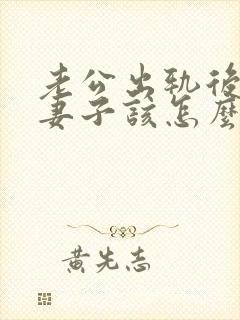 老公出軌後
妻子該怎麼
黃先志